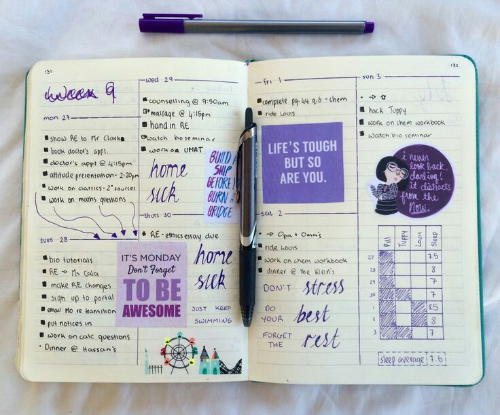 132
week 9
mon 27
show RE to Mr Clark
book doctor's appt.
doctor's appt @ 4:15pm
attitude presentation - 2:20pm
work on classics - 2° sources
work on maths questions
tues 28
bio tutorials
RE → Ms Cola
make RE changes
sign up to portal
email Mo re
put notices in
work on calc questions
Dinner @ Hassan's
wed 29
counselling @ 9:50am
massage @ 4:15pm
hand in RE
watch bio seminar
work on UMAT
home
sick
BUILD A
SHIP
BEFORE
BURN A
BRIDGE
thurs 30
RE - ethics essay due
IT'S MONDAY
Don't Forget
TO BE
AWESOME
home
sick
JUST KEEP
SWIMMING
fri 1
complete pg. 44 q.6 - chem
ride Louis
LIFE'S TOUGH
BUT SO
ARE YOU.
sat 2
→ Opa + Oma's
ride Louis
work on chem workbook
dinner @ the Klein's
DON'T stress
DO
YOUR best
FORGET
THE rest
133
sun 3
hack Tuppy
work on chem workbook
watch bio seminar
i never
look back
darling!
it distracts
from the
now.
Pill
Tuppy
Louis
Sleep
7.5
8
7
8
8.5
8
7
sleep average: 7.6